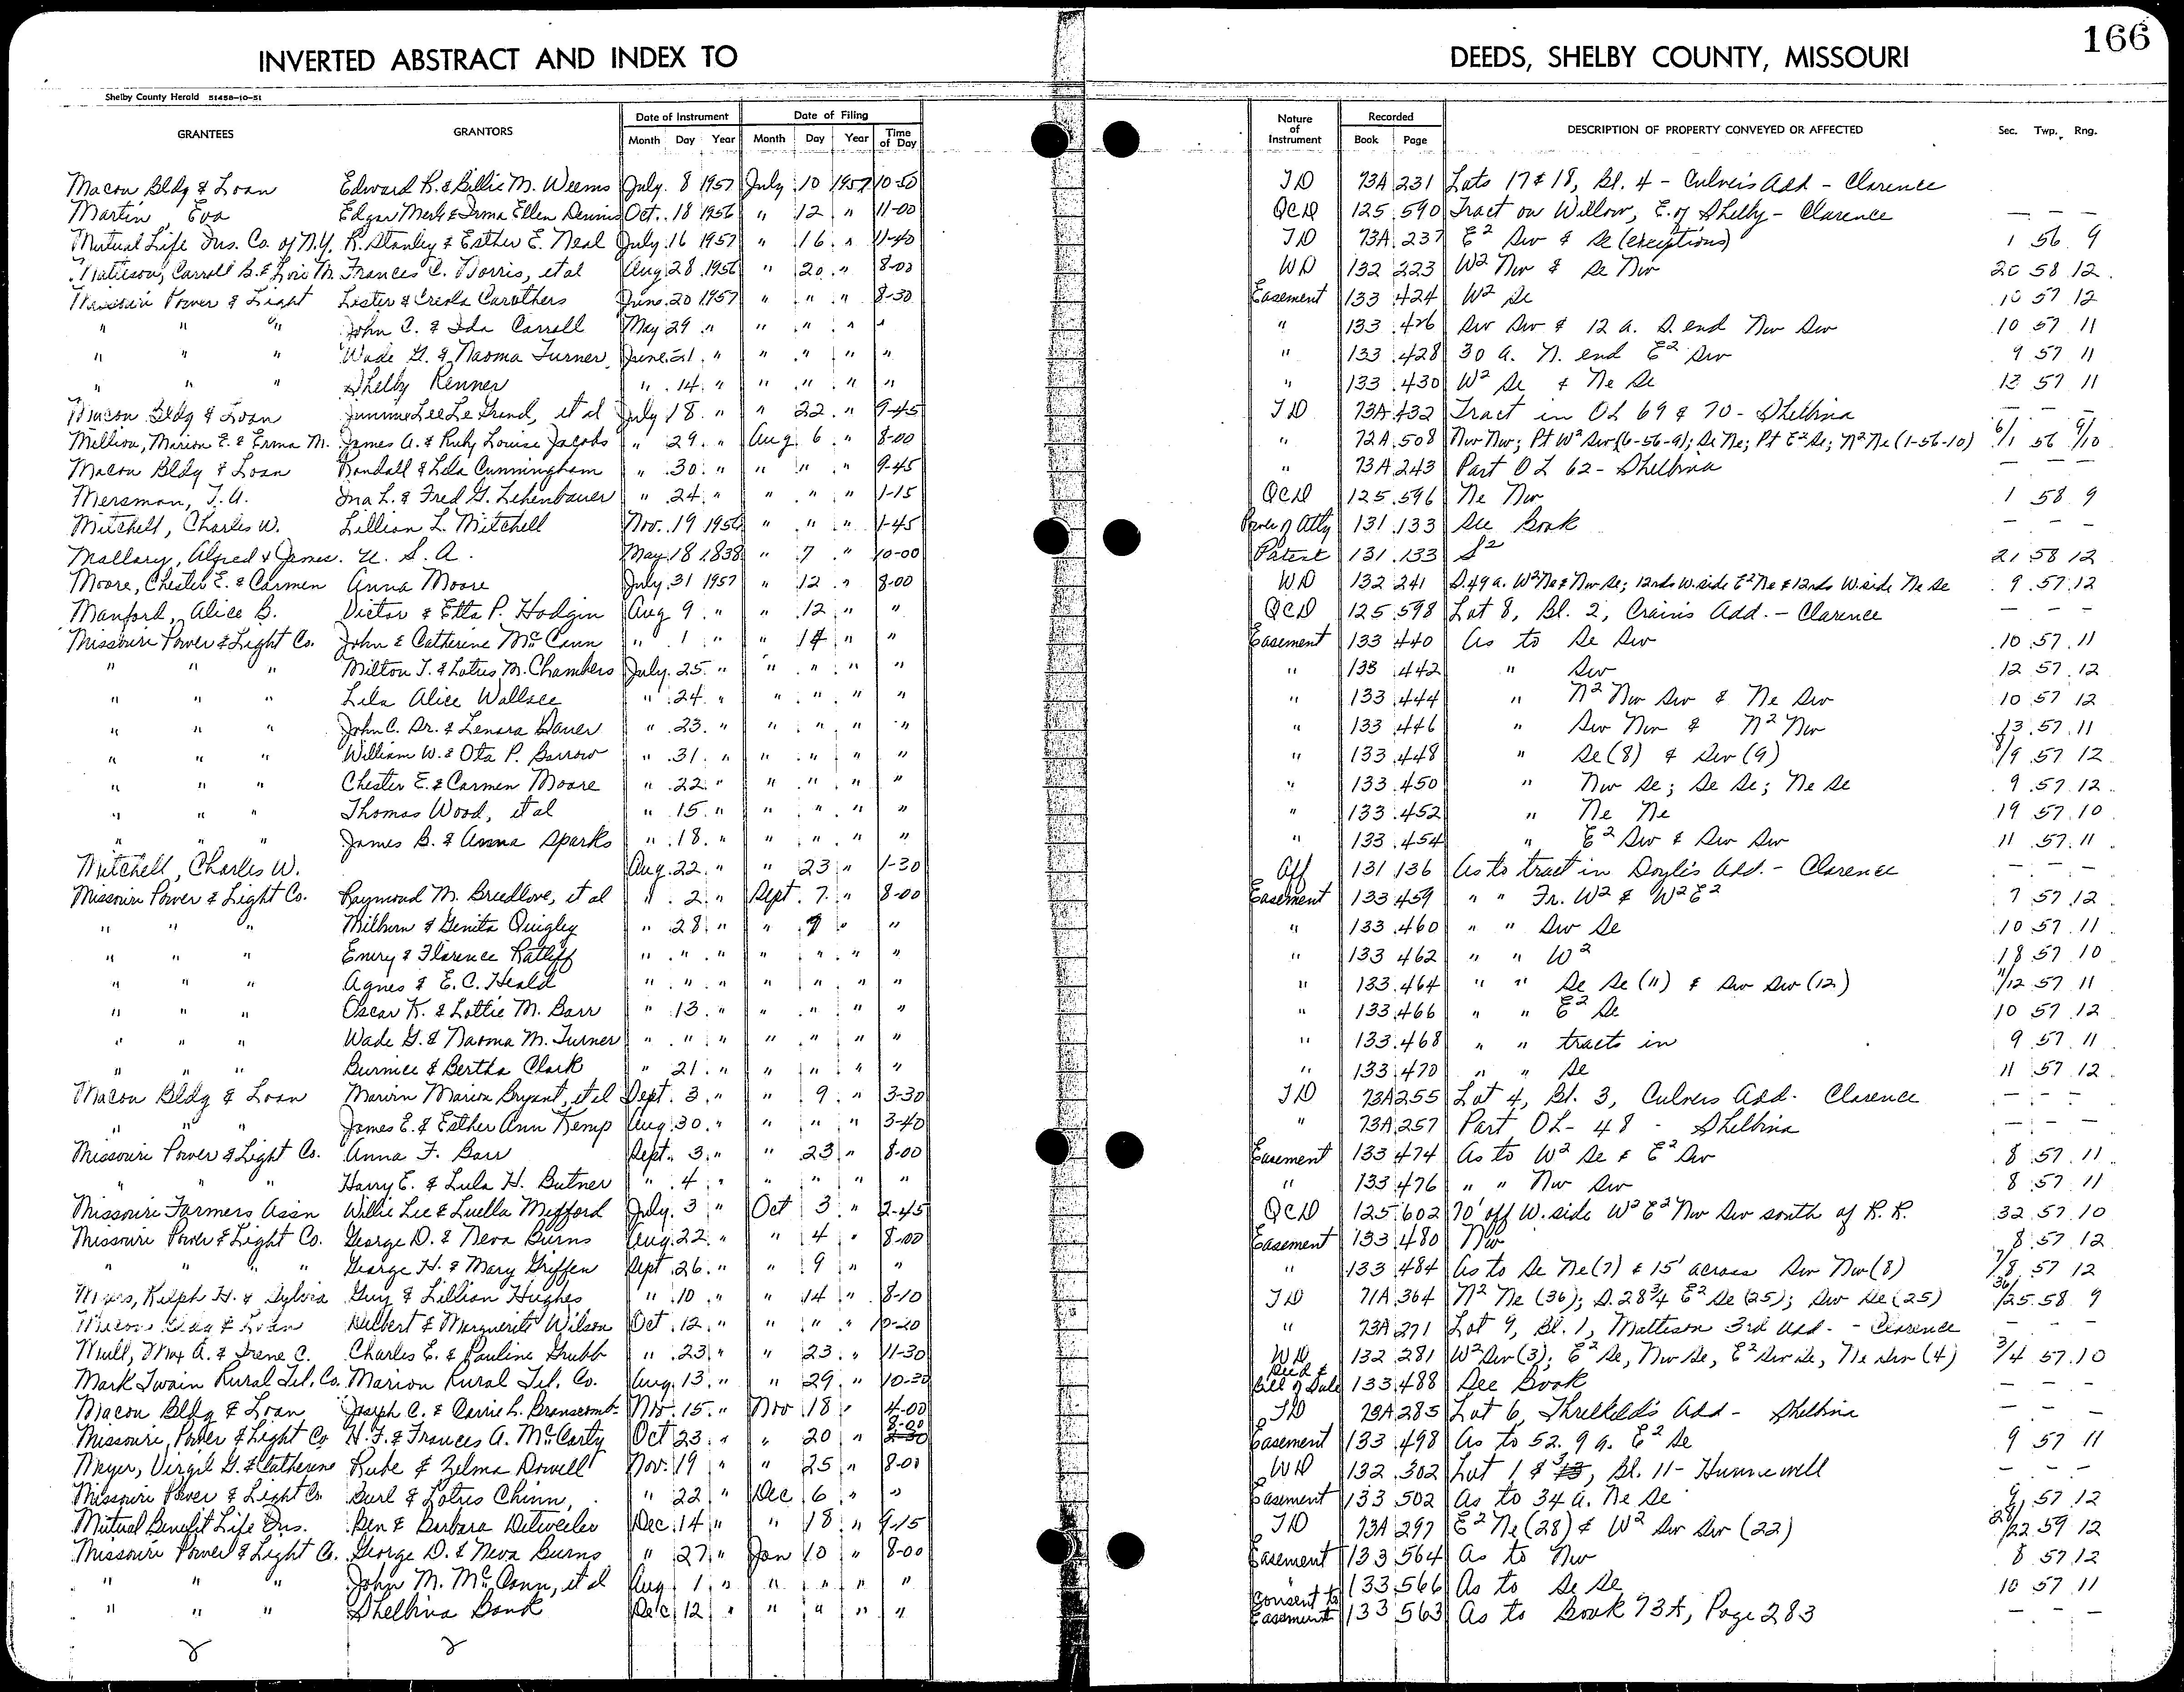 166
INVERTED ABSTRACT AND INDEX TO DEEDS, SHELBY COUNTY, MISSOURI
Shelby County Herald 51458-10-51
GRANTEES GRANTORS Date of Instrument Date of Filing Nature of Instrument Recorded DESCRIPTION OF PROPERTY CONVEYED OR AFFECTED Sec. Twp. Rng.
Month Day Year Month Day Year Time of Day Book Page
Macon Bldg & Loan Edward R. & Billie M. Weems July 8 1957 July 10 1957 10-50 TD 73A 231 Lots 17 & 18, Bl. 4 - Culver's Add - Clarence
Martin, Eva Edgar Merle & Irma Ellen Dennis Oct. 18 1956 " 12 " 11-00 QCD 125 590 Tract on Willow, E. of Shelby - Clarence — — —
Mutual Life Ins. Co. of N.Y. R. Stanley & Esther E. Neal July 16 1957 " 16 " 11-40 TD 73A 237 E² Sw & Se (exceptions) 1 56 9
Matteson, Carroll B. & Lois M. Frances C. Norris, et al Aug 28 1956 " 20 " 8-00 WD 132 223 W² Nw & Se Nw 20 58 12
Missouri Power & Light Lester & Creola Carothers June 20 1957 " " " 8-30 Easement 133 424 W² Se 10 57 12
" " " John C. & Ida Carroll May 29 " " " " " " 133 426 Sw Sw & 12 a. S. end Nw Sw 10 57 11
" " " Wade G. & Naoma Turner June 21 " " " " " " 133 428 30 a. N. end E² Sw 9 57 11
" " " Shelby Renner " 14 " " " " " " 133 430 W² Se & Ne Se 12 57 11
Macon Bldg & Loan Jimmie Lee LeGrand, et al July 18 " " 22 " 9-45 TD 73A 432 Tract in OL 69 & 70 - Shelbina — — —
Million, Marion E. & Erma M. James A. & Ruby Louise Jacobs " 29 " Aug 6 " 8-00 " 72A 508 Nw Nw; Pt W² Sw (6-56-9); Se Ne; Pt E² Se; N² Ne (1-56-10) 6/1 56 9/10
Macon Bldg & Loan Randall & Lela Cunningham " 30 " " " " 9-45 " 73A 243 Part OL 62 - Shelbina — — —
Mersman, T.A. Ina L. & Fred G. Lehenbauer " 24 " " " " 1-15 QCD 125 596 Ne Nw 1 58 9
Mitchell, Charles W. Lillian L. Mitchell Nov. 19 1956 " " " 1-45 Power of Atty 131 133 See Book — — —
Mallary, Alfred & James. U. S. A. May 18 1838 " 7 " 10-00 Patent 131 133 S² 21 58 12
Moore, Chester E. & Carmen Anna Moore July 31 1957 " 12 " 8-00 WD 132 241 S. 49 a. W² Ne & Nw Se; 12 rds W. side E² Ne & 12 rds W. side Ne Se 9 57 12
Manford, Alice B. Victor & Etta P. Hodgin Aug 9 " " 12 " " QCD 125 598 Lot 8, Bl. 2, Crain's Add. - Clarence — — —
Missouri Power & Light Co. John & Catherine McCann " 1 " " 14 " " Easement 133 440 As to Se Sw 10 57 11
" " " Milton T. & Lotus M. Chambers July 25 " " " " " " 133 442 " Sw 12 57 12
" " " Lela Alice Wallace " 24 " " " " " " 133 444 " N² Nw Sw & Ne Sw 10 57 12
" " " John C. Sr. & Lenora Bauer " 23 " " " " " " 133 446 " Sw Nw & N² Nw 13 57 11
" " " William W. & Ota P. Barrow " 31 " " " " " " 133 448 " Se (8) & Sw (9) 8/9 57 12
" " " Chester E. & Carmen Moore " 22 " " " " " " 133 450 " Nw Se; Se Se; Ne Se 9 57 12
" " " Thomas Wood, et al " 15 " " " " " " 133 452 " Ne Ne 19 57 10
" " " James B. & Anna Sparks " 18 " " " " " " 133 454 " E² Sw & Sw Sw 11 57 11
Mitchell, Charles W. Aug. 22 " " 23 " 1-30 Aff 131 136 As to tract in Doyle's Add. - Clarence — — —
Missouri Power & Light Co. Raymond M. Breedlove, et al " 2 " Sept. 7 " 8-00 Easement 133 459 " " Fr. W² & W² E² 7 57 12
" " " Milburn & Genita Quigley " 28 " " 7 " " " 133 460 " " Sw Se 10 57 11
" " " Emry & Florence Ratliff " " " " " " " " 133 462 " " W² 18 57 10
" " " Agnes & E.C. Heald " " " " " " " " 133 464 " " Se Se (11) & Sw Sw (12) 11/12 57 11
" " " Oscar K. & Lottie M. Barr " 13 " " " " " " 133 466 " " E² Se 10 57 12
" " " Wade G. & Naoma M. Turner " " " " " " " " 133 468 " " tracts in 9 57 11
" " " Burnice & Bertha Clark " 21 " " " " " " 133 470 " " Se 11 57 12
Macon Bldg & Loan Marvin Marion Bryant, et al Sept. 3 " " 9 " 3-30 TD 73A 255 Lot 4, Bl. 3, Culvers Add - Clarence — — —
" " " James E. & Esther Ann Kemp Aug 30 " " " " 3-40 " 73A 257 Part OL - 48 - Shelbina — — —
Missouri Power & Light Co. Anna F. Barr Sept. 3 " " 23 " 8-00 Easement 133 474 As to W² Se & E² Sw 8 57 11
" " " Harry E. & Lula H. Butner " 4 " " " " " " 133 476 " " Nw Sw 8 57 11
Missouri Farmers Assn Willie Lee & Luella Mefford July 3 " Oct 3 " 2-45 QCD 125 602 70' off W. side W² E² Nw Sw south of R. R. 32 57 10
Missouri Power & Light Co. George D. & Neva Burns Aug 22 " " 4 " 8-00 Easement 133 480 Nw 8 57 12
" " " " George H. & Mary Griffen Sept 26 " " 9 " " " 133 484 As to Se Ne (7) & 15' across Sw Nw (8) 7/8 57 12
Myers, Ralph H. & Sylvia Guy & Lillian Hughes " 10 " " 14 " 8-10 TD 71A 364 N² Ne (36); S. 28¾ E² Se (25); Sw Se (25) 36/25 58 9
Macon Bldg & Loan Delbert & Marguerite Wilson Oct. 12 " " " " 10-20 " 73A 271 Lot 9, Bl. 1, Matteson 3rd Add. - Clarence — — —
Mull, Max A. & Irene C. Charles E. & Pauline Grubb " 23 " " 23 " 11-30 WD 132 281 W² Sw (3); E² Se, Nw Se, E² Sw Se, Ne Sw (4) 3/4 57 10
Mark Twain Rural Tel. Co. Marion Rural Tel. Co. Aug 13 " " 29 " 10-30 Deed & Bill of Sale 133 488 See Book — — —
Macon Bldg & Loan Joseph C. & Carrie L. Branscomb Nov. 15 " Nov 18 " 4-00 TD 73A 285 Lot 6, Threlkeld's Add - Shelbina — — —
Missouri Power & Light Co H.F. & Frances A. McCarty Oct 23 " " 20 " 8-00 Easement 133 498 As to 52.9 a. E² Se 9 57 11
Meyer, Virgil G. & Catherine Rube & Zelma Dowell Nov. 19 " " 25 " 8-00 WD 132 302 Lot 1 & 3, Bl. 11 - Hunnewell — — —
Missouri Power & Light Co. Burl & Lotus Chinn, " 22 " Dec 6 " " Easement 133 502 As to 34 a. Ne Se 9 57 12
Mutual Benefit Life Ins. Ben & Barbara Detweiler Dec. 14 " " 18 " 9-15 TD 73A 297 E² Ne (28) & W² Sw Sw (22) 28/22 59 12
Missouri Power & Light Co. George D. & Neva Burns " 27 " Jan 10 " 8-00 Easement 133 564 As to Nw 8 57 12
" " " John M. McCann, et al Aug 1 " " " " " " 133 566 As to Se Se 10 57 11
" " " Shelbina Bank Dec 12 " " " " " Consent to Easement 133 563 As to Book 73A, Page 283 — — —